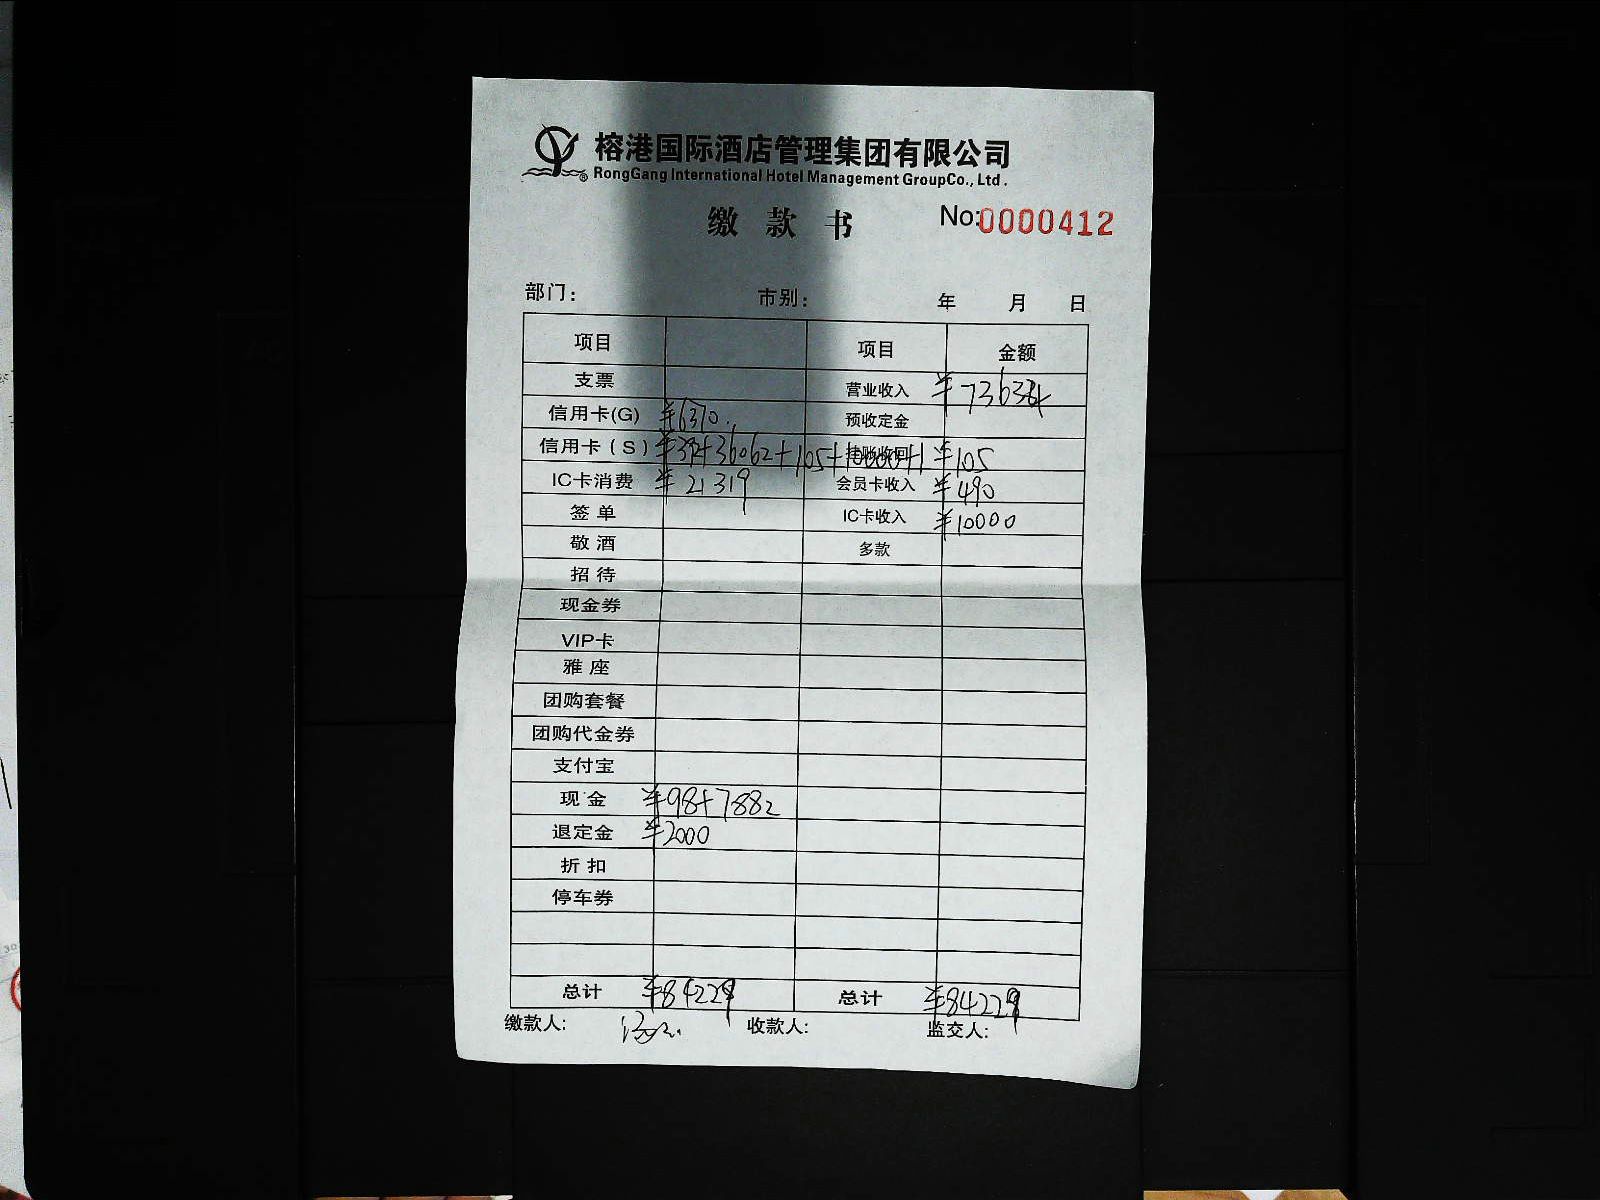 榕港国际酒店管理集团有限公司
RongGang International Hotel Management GroupCo., Ltd.
缴款书 No:0000412
部门: 市别: 年 月 日
项目 项目 金额
支票 营业收入 ¥73634
信用卡(G) ¥6370. 预收定金
信用卡(S) ¥392+36062+105+10000+1 挂账收回 ¥105
IC卡消费 ¥21319 会员卡收入 ¥490
签单 IC卡收入 ¥10000
敬酒 多款
招待
现金券
VIP卡
雅座
团购套餐
团购代金券
支付宝
现金 ¥98+7882
退定金 ¥2000
折扣
停车券
总计 ¥84229 总计 ¥84229
缴款人: 收款人: 监交人: